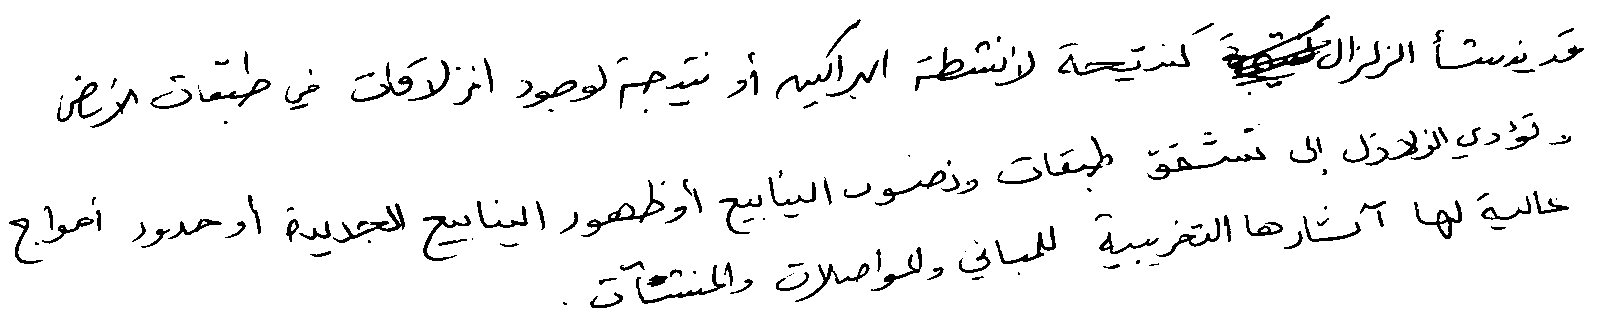 قد ينشأ الزلزال كنتيجة لأنشطة البراكين أو نتيجة لوجود انزلاقات في طبقات الأرض
وتؤدي الزلازل إلى تشقق طبقات ونضوب الينابيع أو ظهور الينابيع الجديدة أو حدود أمواج
عالية لها آثارها التخريبية للمباني والمواصلات والمنشآت .